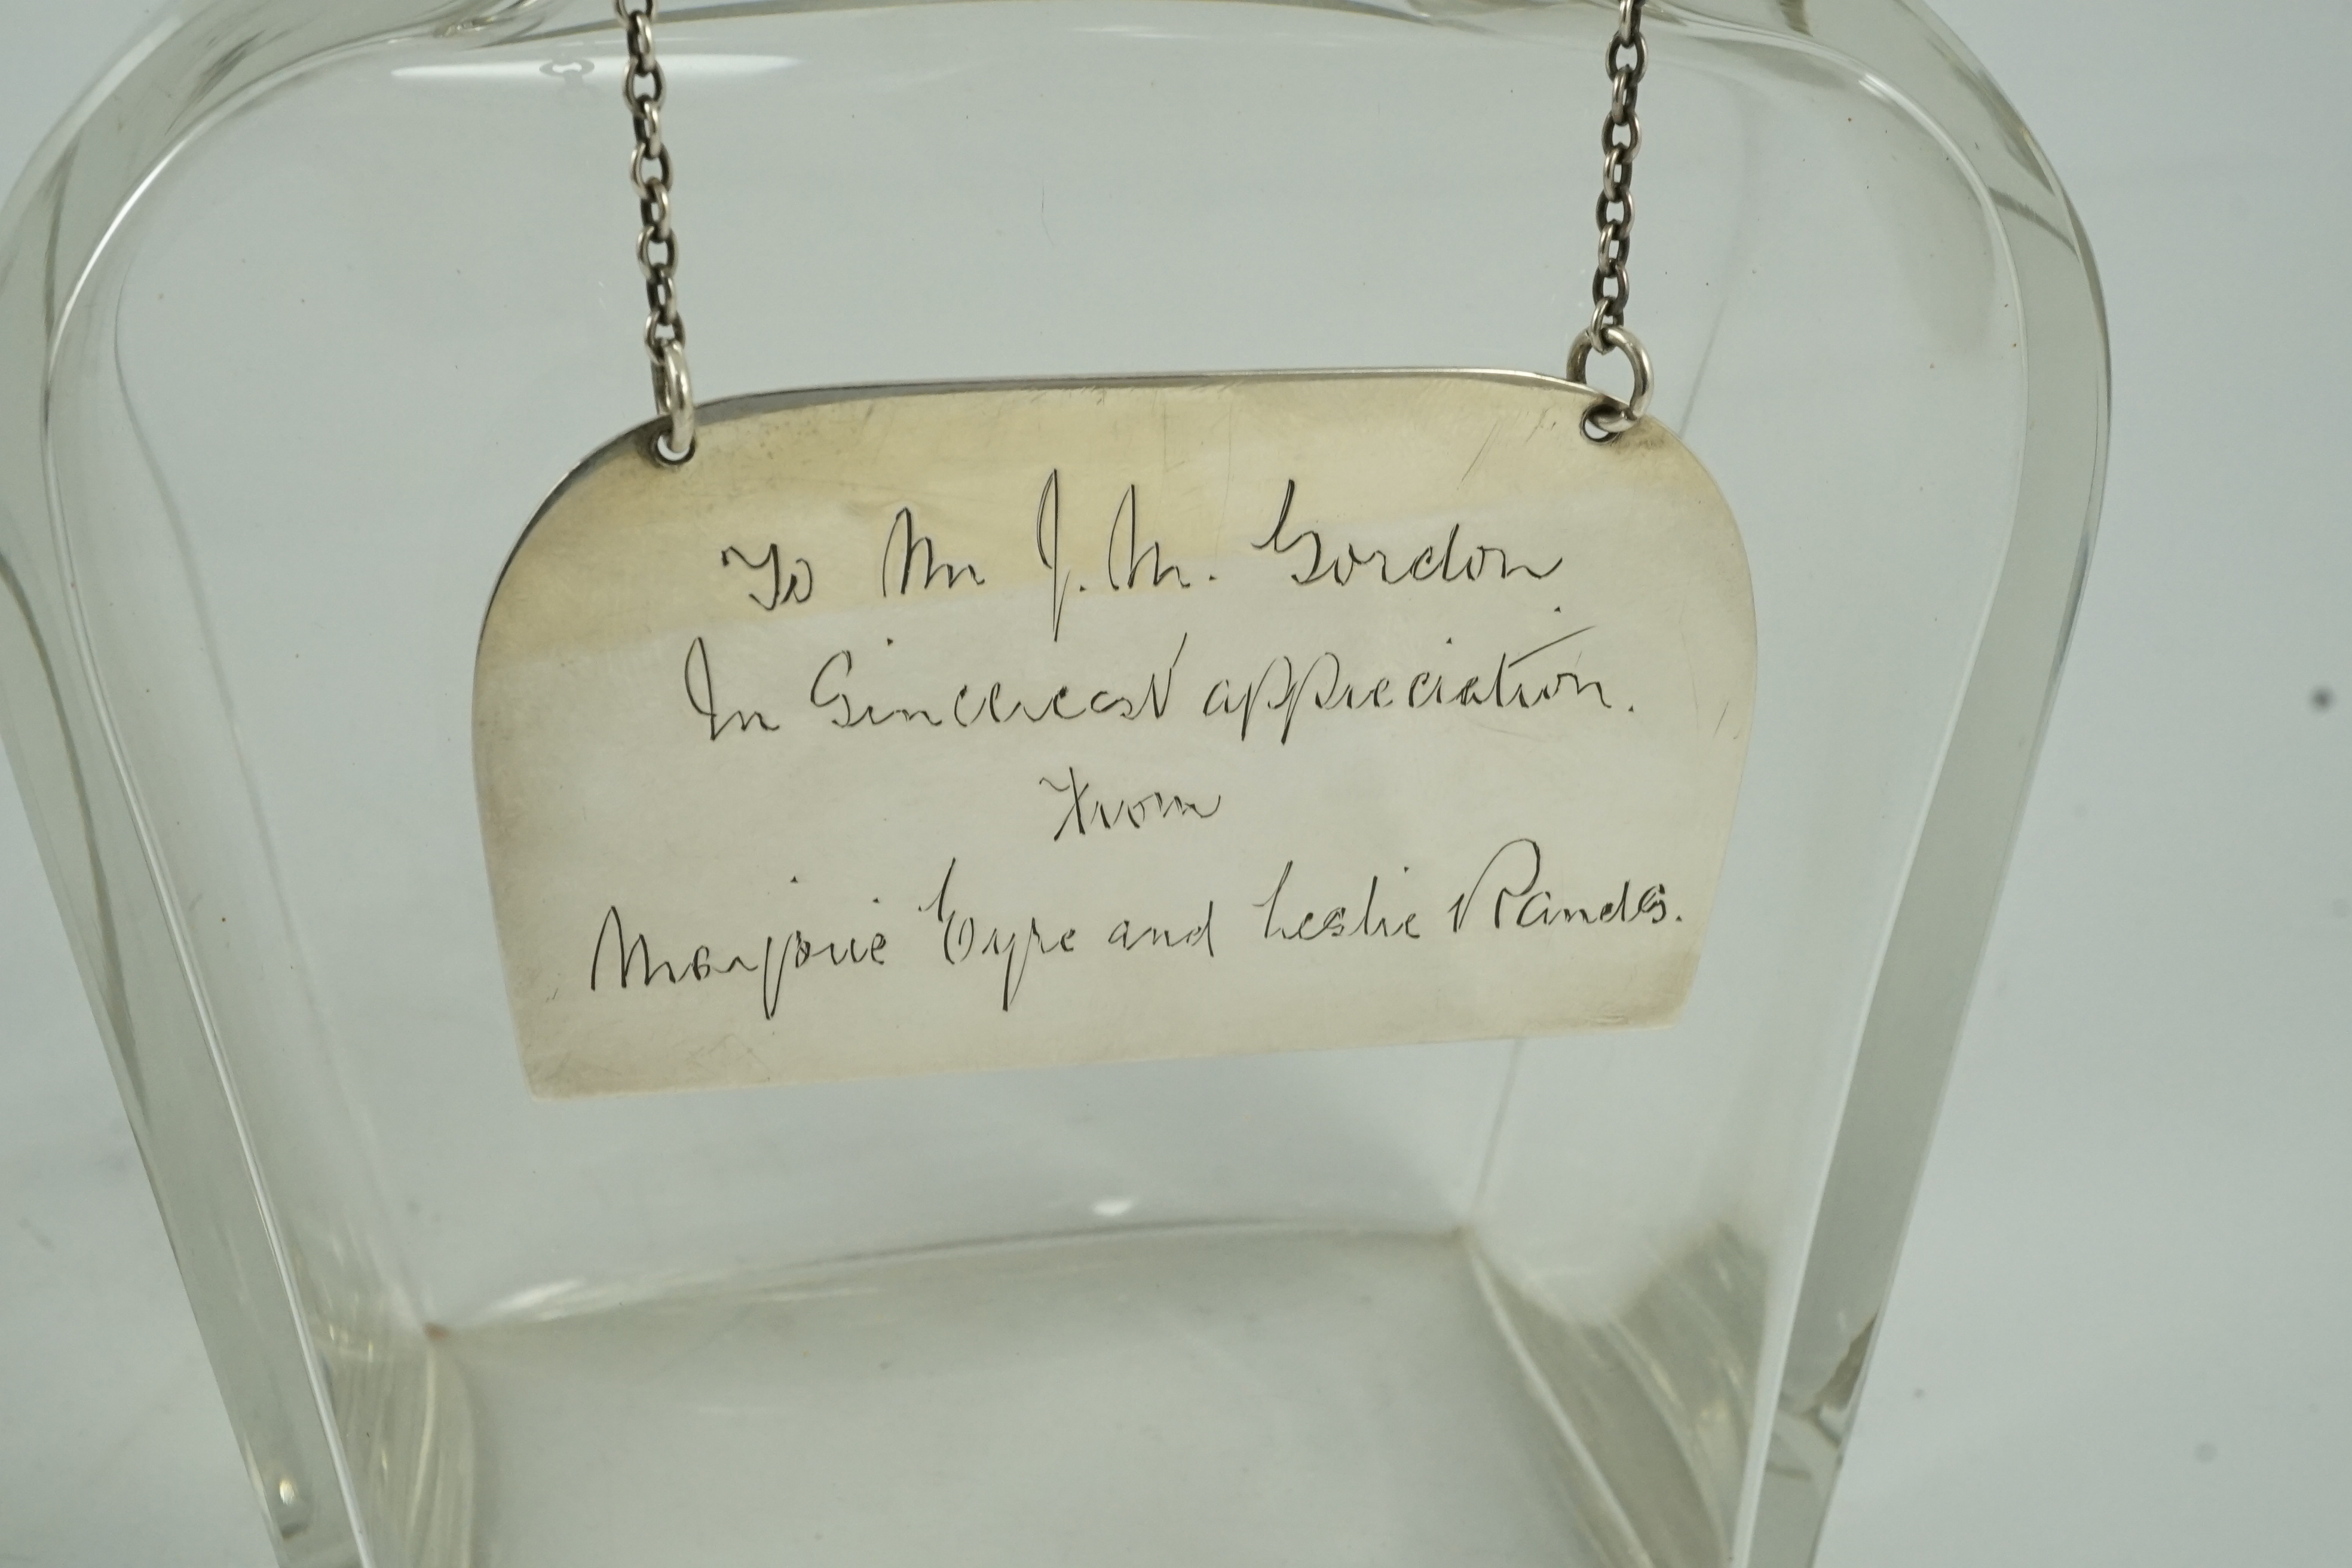 To Mr J. M. Gordon
In Sincerest appreciation.
From
Marjorie Eyre and Leslie Rands.